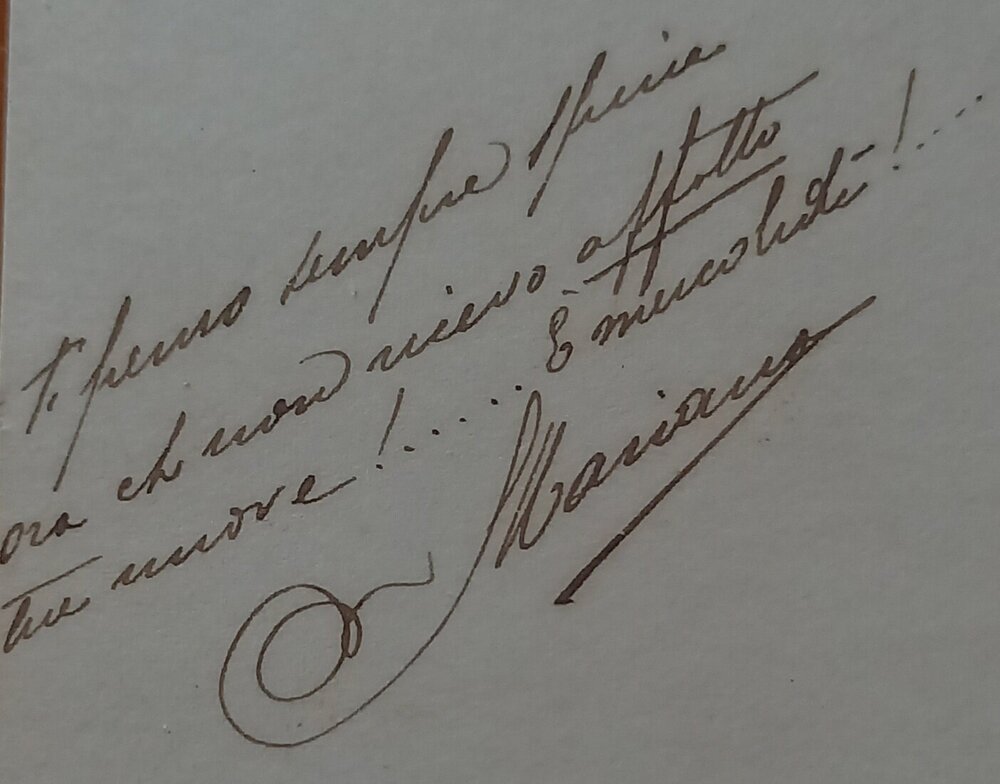 Ti penso sempre specie
ora che non ricevo affatto
tue nuove!.... E mercoledì!...
Mariano